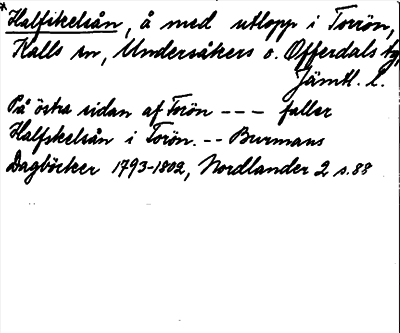 *Halfikelsån, å med utlopp i Torrön,
Kalls sn, Undersåkers o. Offerdals tg,
Jämtl. l.
På östra sidan af Torön --- faller
Halfskelsån i Torön. -- Burmans
Dagböcker 1793-1802, Nordlander 2 s. 88